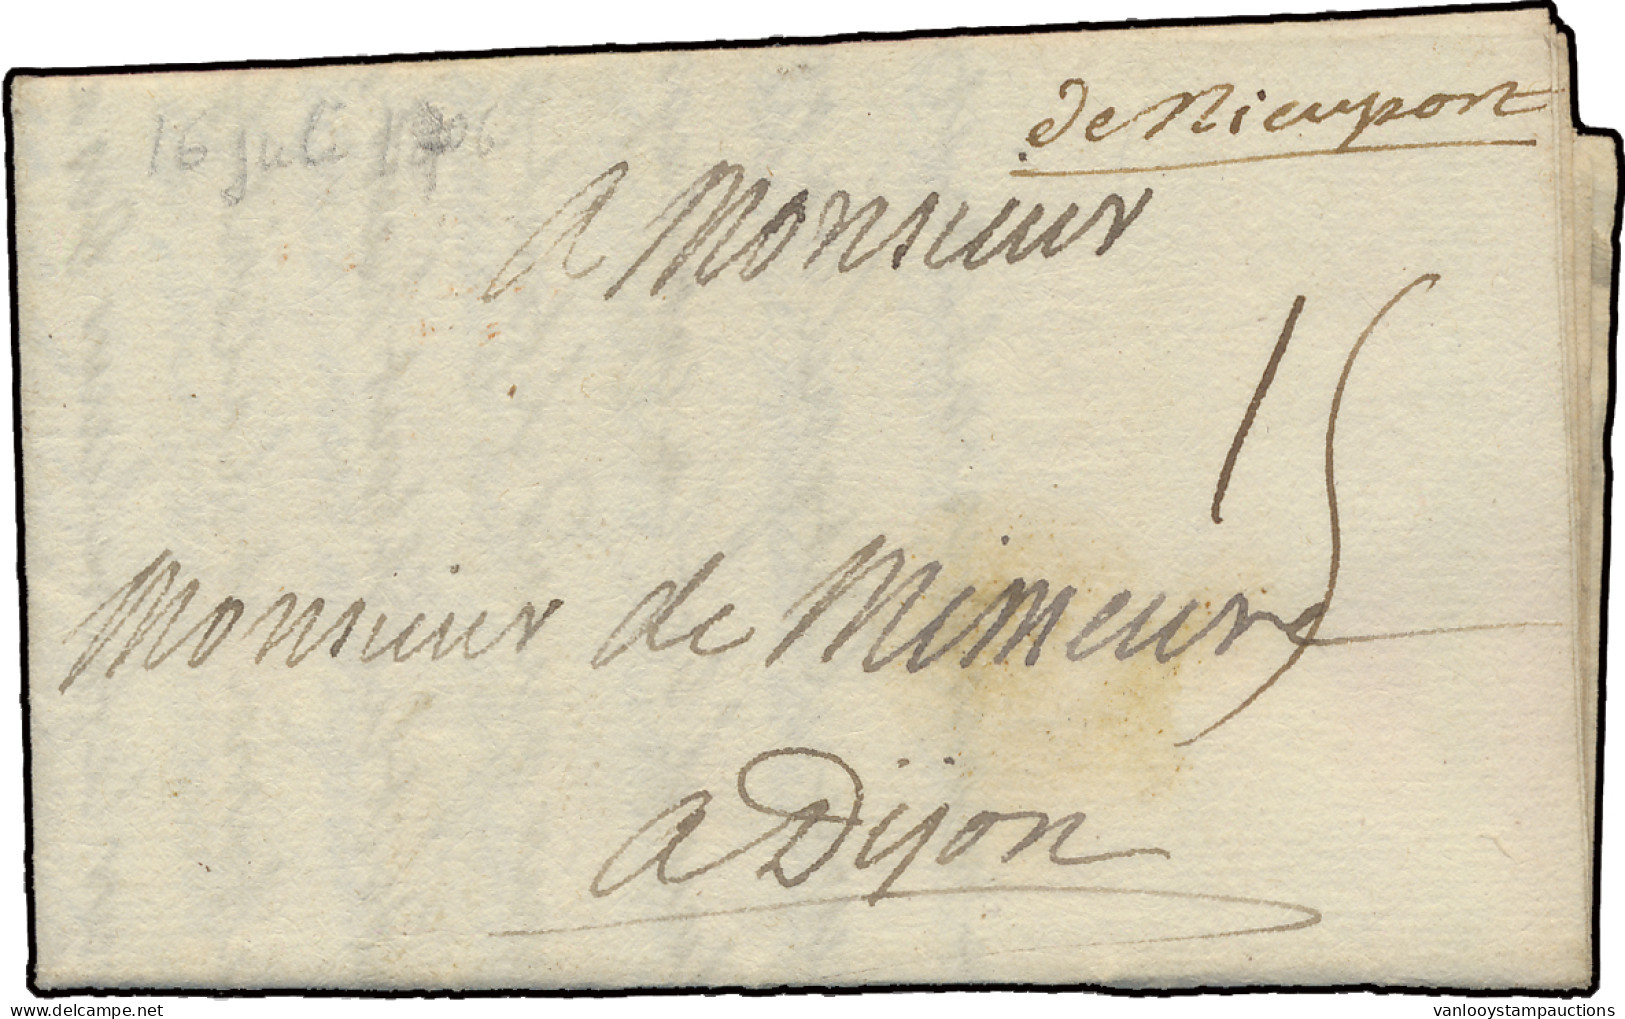 de Nieuport
16 juli 1706
a Monsieur
15
Monsieur de Mimeure
a Dijon
delcampe.net
vanlooystampauctions